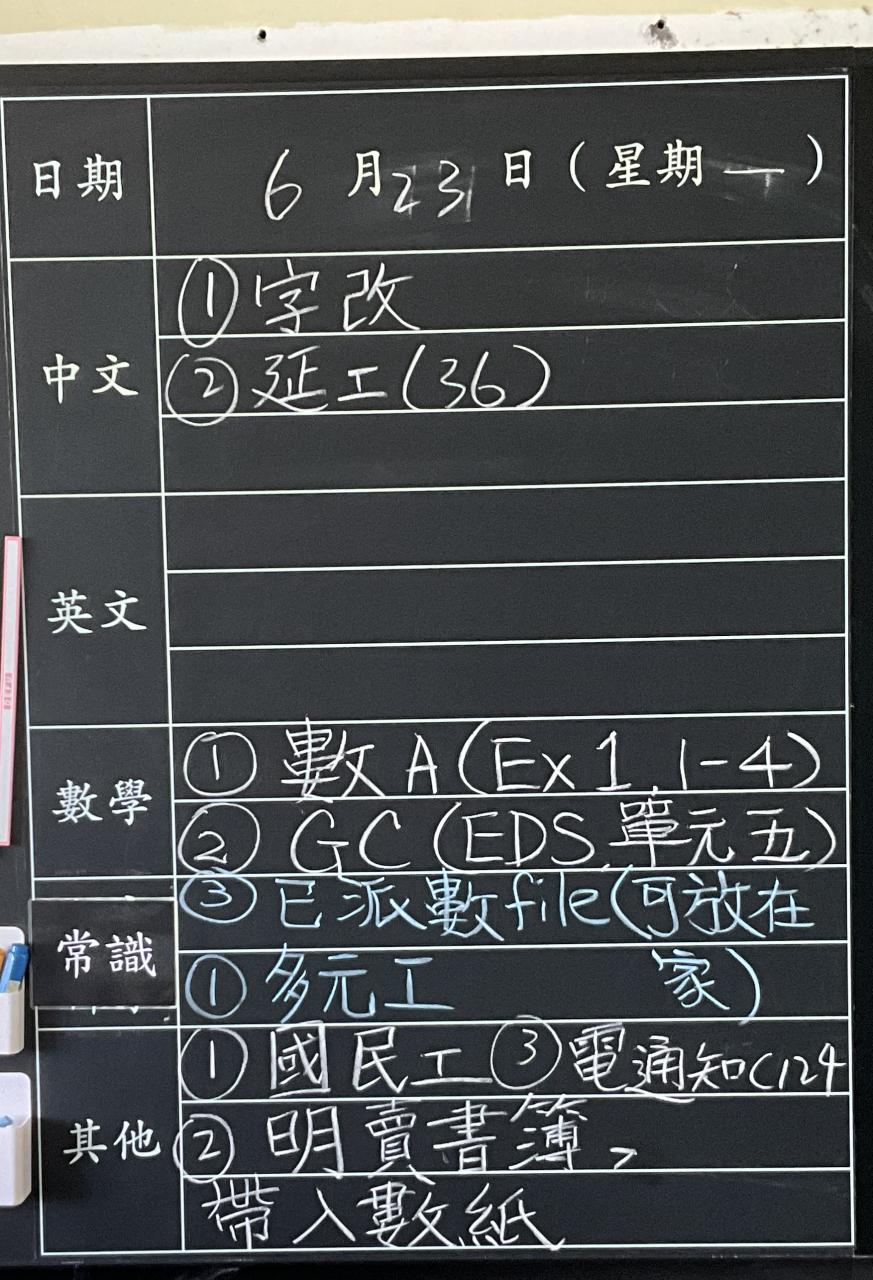 日期 6月23日(星期一)
中文 ①字改
②延工(36)
英文
數學 ①數A(Ex1, 1-4)
②GC(EDS, 單元五)
③已派數file(可放在
常識 ①多元工 家)
其他 ①國民工 ③電通知(124
②明賣書簿,
帶入數紙